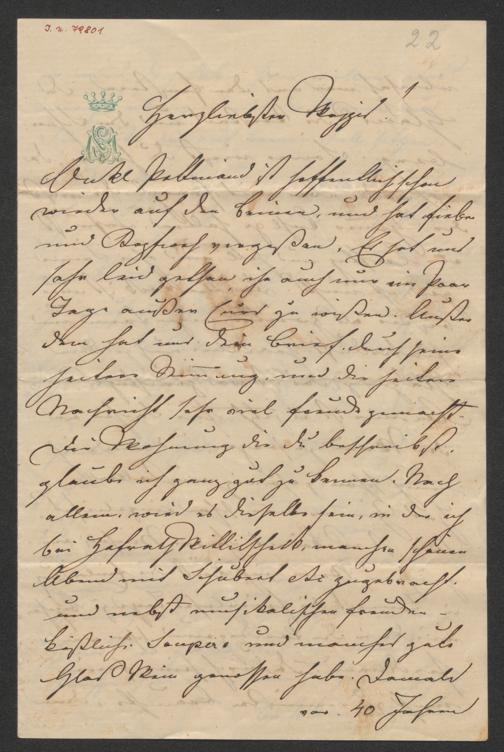 I. N. 79801
22
Herzliebster
Onkel ist hoffentlich schon
wieder auf den Beinen, und hat Fieber
und Kopfweh vergeßen. Es hat uns
sehr leid gethan, ihn auch nur ein Paar
Tage außer Curs zu wißen. Außer
dem hat uns Dein Brief durch seine
heitere Stimmung, und die heitere
Nachricht sehr viel Freude gemacht.
Die Wohnung die du beschreibst,
glaube ich ganz gut zu kennen. Nach
allem, wird es dieselbe sein, in der ich
bei Hofraths manchen schönen
Abend mit Schubert zugebracht,
und nebst musikalischen Freuden
köstliche Soupers und manches gute
Glas Wein genossen habe. Damals
vor 40 Jahren